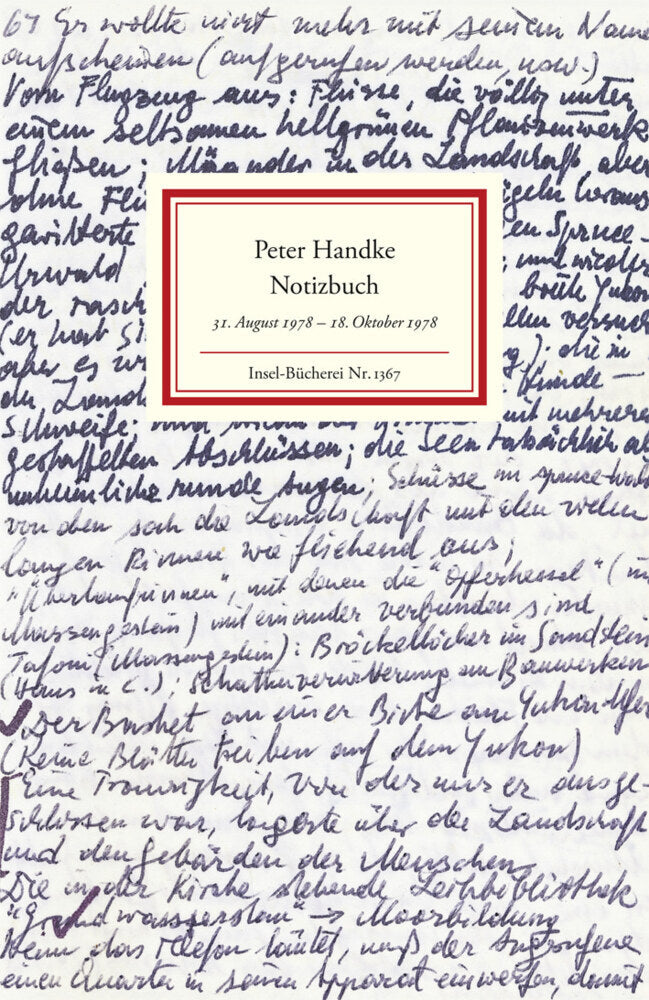 67 Er wollte nicht mehr mit seinem Name
aufscheinen (aufgerufen werden, usw.)
Vom Flugzeug aus: Flüsse, die völlig unter
einem seltsamen hellgrünen Pflanzenwerk
fließen; Mäander in der Landschaft aber
ohne Flü
igeln heraus
gewitterte
en Spruce-
Urwald
; und wieder
der rasch
breite Yukon
(er hat Si
llen versuch
aber es wi
g); die in
die Land
Hunde —
Schweife.
mit mehreren
gestaffelten Abschlüssen; die Seen tatsächlich al
unheimliche runde Augen; Schüsse im spruce-wald
von oben sah die Landschaft mit den vielen
langen Rinnen wie fliehend aus;
"Überlaufrinnen", mit denen die "Opferkessel" (im
Massengestein) miteinander verbunden sind
Tafoni (Massengestein): Bröckellöcher im Sandstein
(Haus in C.); Schattenverwitterung an Bauwerken
Der Bucket an einer Birke am Yukonufer
(Keine Blätter treiben auf dem Yukon)
Eine Traurigkeit, von der nur er ausge-
schlossen war, lagerte über der Landschaft
und den Gebärden der Menschen
Die in der Kirche stehende Leihbibliothek
"Grundwasserstau" → Moorbildung
Wenn das Telefon läutet, muß der Angerufene
einen Quarter in seinen Apparat einwerfen, damit
Peter Handke
Notizbuch
31. August 1978 – 18. Oktober 1978
Insel-Bücherei Nr. 1367